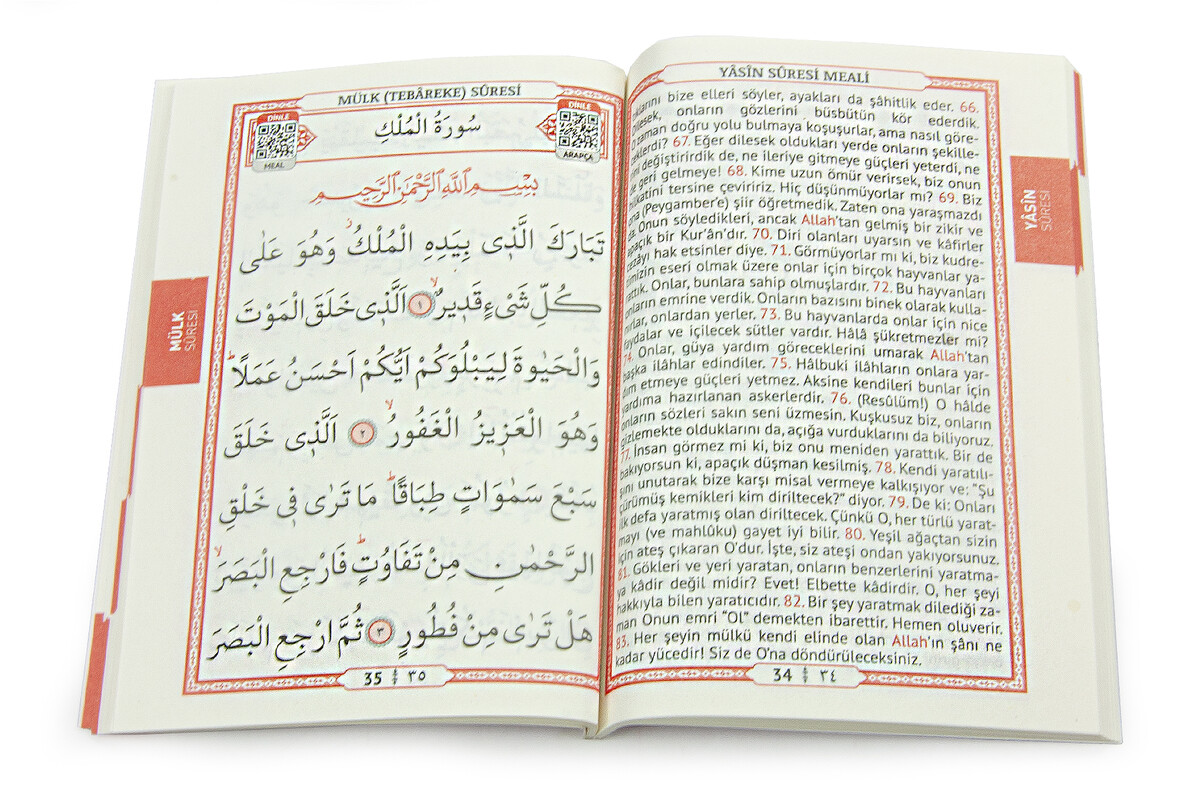 YÂSÎN SÛRESİ MEALİ
bize elleri söyler, ayakları da şâhitlik eder. 66.
dilesek, onların gözlerini büsbütün kör ederdik.
zaman doğru yolu bulmaya koşuşurlar, ama nasıl göre-
67. Eğer dilesek oldukları yerde onların şekille-
değiştirirdik de, ne ileriye gitmeye güçleri yeterdi, ne
geri gelmeye! 68. Kime uzun ömür verirsek, biz onun
tersine çeviririz. Hiç düşünmüyorlar mı? 69. Biz
ona (Peygamber'e) şiir öğretmedik. Zaten ona yaraşmazdı
da. Onun söyledikleri, ancak Allah'tan gelmiş bir zikir ve
apaçık bir Kur'ân'dır. 70. Diri olanları uyarsın ve kâfirler
cezâyı hak etsinler diye. 71. Görmüyorlar mı ki, biz kudre-
timizin eseri olmak üzere onlar için birçok hayvanlar ya-
rattık. Onlar, bunlara sahip olmuşlardır. 72. Bu hayvanları
onların emrine verdik. Onların bazısını binek olarak kulla-
nırlar, onlardan yerler. 73. Bu hayvanlarda onlar için nice
faydalar ve içilecek sütler vardır. Hâlâ şükretmezler mi?
74. Onlar, güya yardım göreceklerini umarak Allah'tan
başka ilâhlar edindiler. 75. Hâlbuki ilâhların onlara yar-
dım etmeye güçleri yetmez. Aksine kendileri bunlar için
yardıma hazırlanan askerlerdir. 76. (Resûlüm!) O hâlde
onların sözleri sakın seni üzmesin. Kuşkusuz biz, onların
gizlemekte olduklarını da, açığa vurduklarını da biliyoruz.
77. İnsan görmez mi ki, biz onu meniden yarattık. Bir de
bakıyorsun ki, apaçık düşman kesilmiş. 78. Kendi yaratılı-
şını unutarak bize karşı misal vermeye kalkışıyor ve: "Şu
çürümüş kemikleri kim diriltecek?" diyor. 79. De ki: Onları
ilk defa yaratmış olan diriltecek. Çünkü O, her türlü yarat-
mayı (ve mahlûku) gayet iyi bilir. 80. Yeşil ağaçtan sizin
için ateş çıkaran O'dur. İşte, siz ateşi ondan yakıyorsunuz.
81. Gökleri ve yeri yaratan, onların benzerlerini yaratma-
ya kâdir değil midir? Evet! Elbette kâdirdir. O, her şeyi
hakkıyla bilen yaratıcıdır. 82. Bir şey yaratmak dilediği za-
man Onun emri "Ol" demekten ibarettir. Hemen oluverir.
83. Her şeyin mülkü kendi elinde olan Allah'ın şânı ne
kadar yücedir! Siz de O'na döndürüleceksiniz.
34 ٣٤
YÂSÎN
SÛRESİ
MÜLK (TEBÂREKE) SÛRESİ
DİNLE
ARAPÇA
سُورَةُ الْمُلْكِ
DİNLE
MEAL
بِسْمِ اللّٰهِ الرَّحْمٰنِ الرَّحِيمِ
تَبَارَكَ الَّذٖى بِيَدِهِ الْمُلْكُ وَهُوَ عَلٰى
كُلِّ شَىْءٍ قَدٖيرٌ ١ اَلَّذٖى خَلَقَ الْمَوْتَ
وَالْحَيٰوةَ لِيَبْلُوَكُمْ اَيُّكُمْ اَحْسَنُ عَمَلًا
وَهُوَ الْعَزٖيزُ الْغَفُورُ ٢ اَلَّذٖى خَلَقَ
سَبْعَ سَمٰوَاتٍ طِبَاقًا مَا تَرٰى فٖى خَلْقِ
الرَّحْمٰنِ مِنْ تَفَاوُتٍ فَارْجِعِ الْبَصَرَ
هَلْ تَرٰى مِنْ فُطُورٍ ٣ ثُمَّ ارْجِعِ الْبَصَرَ
35 ٣٥
MÜLK
SÛRESİ